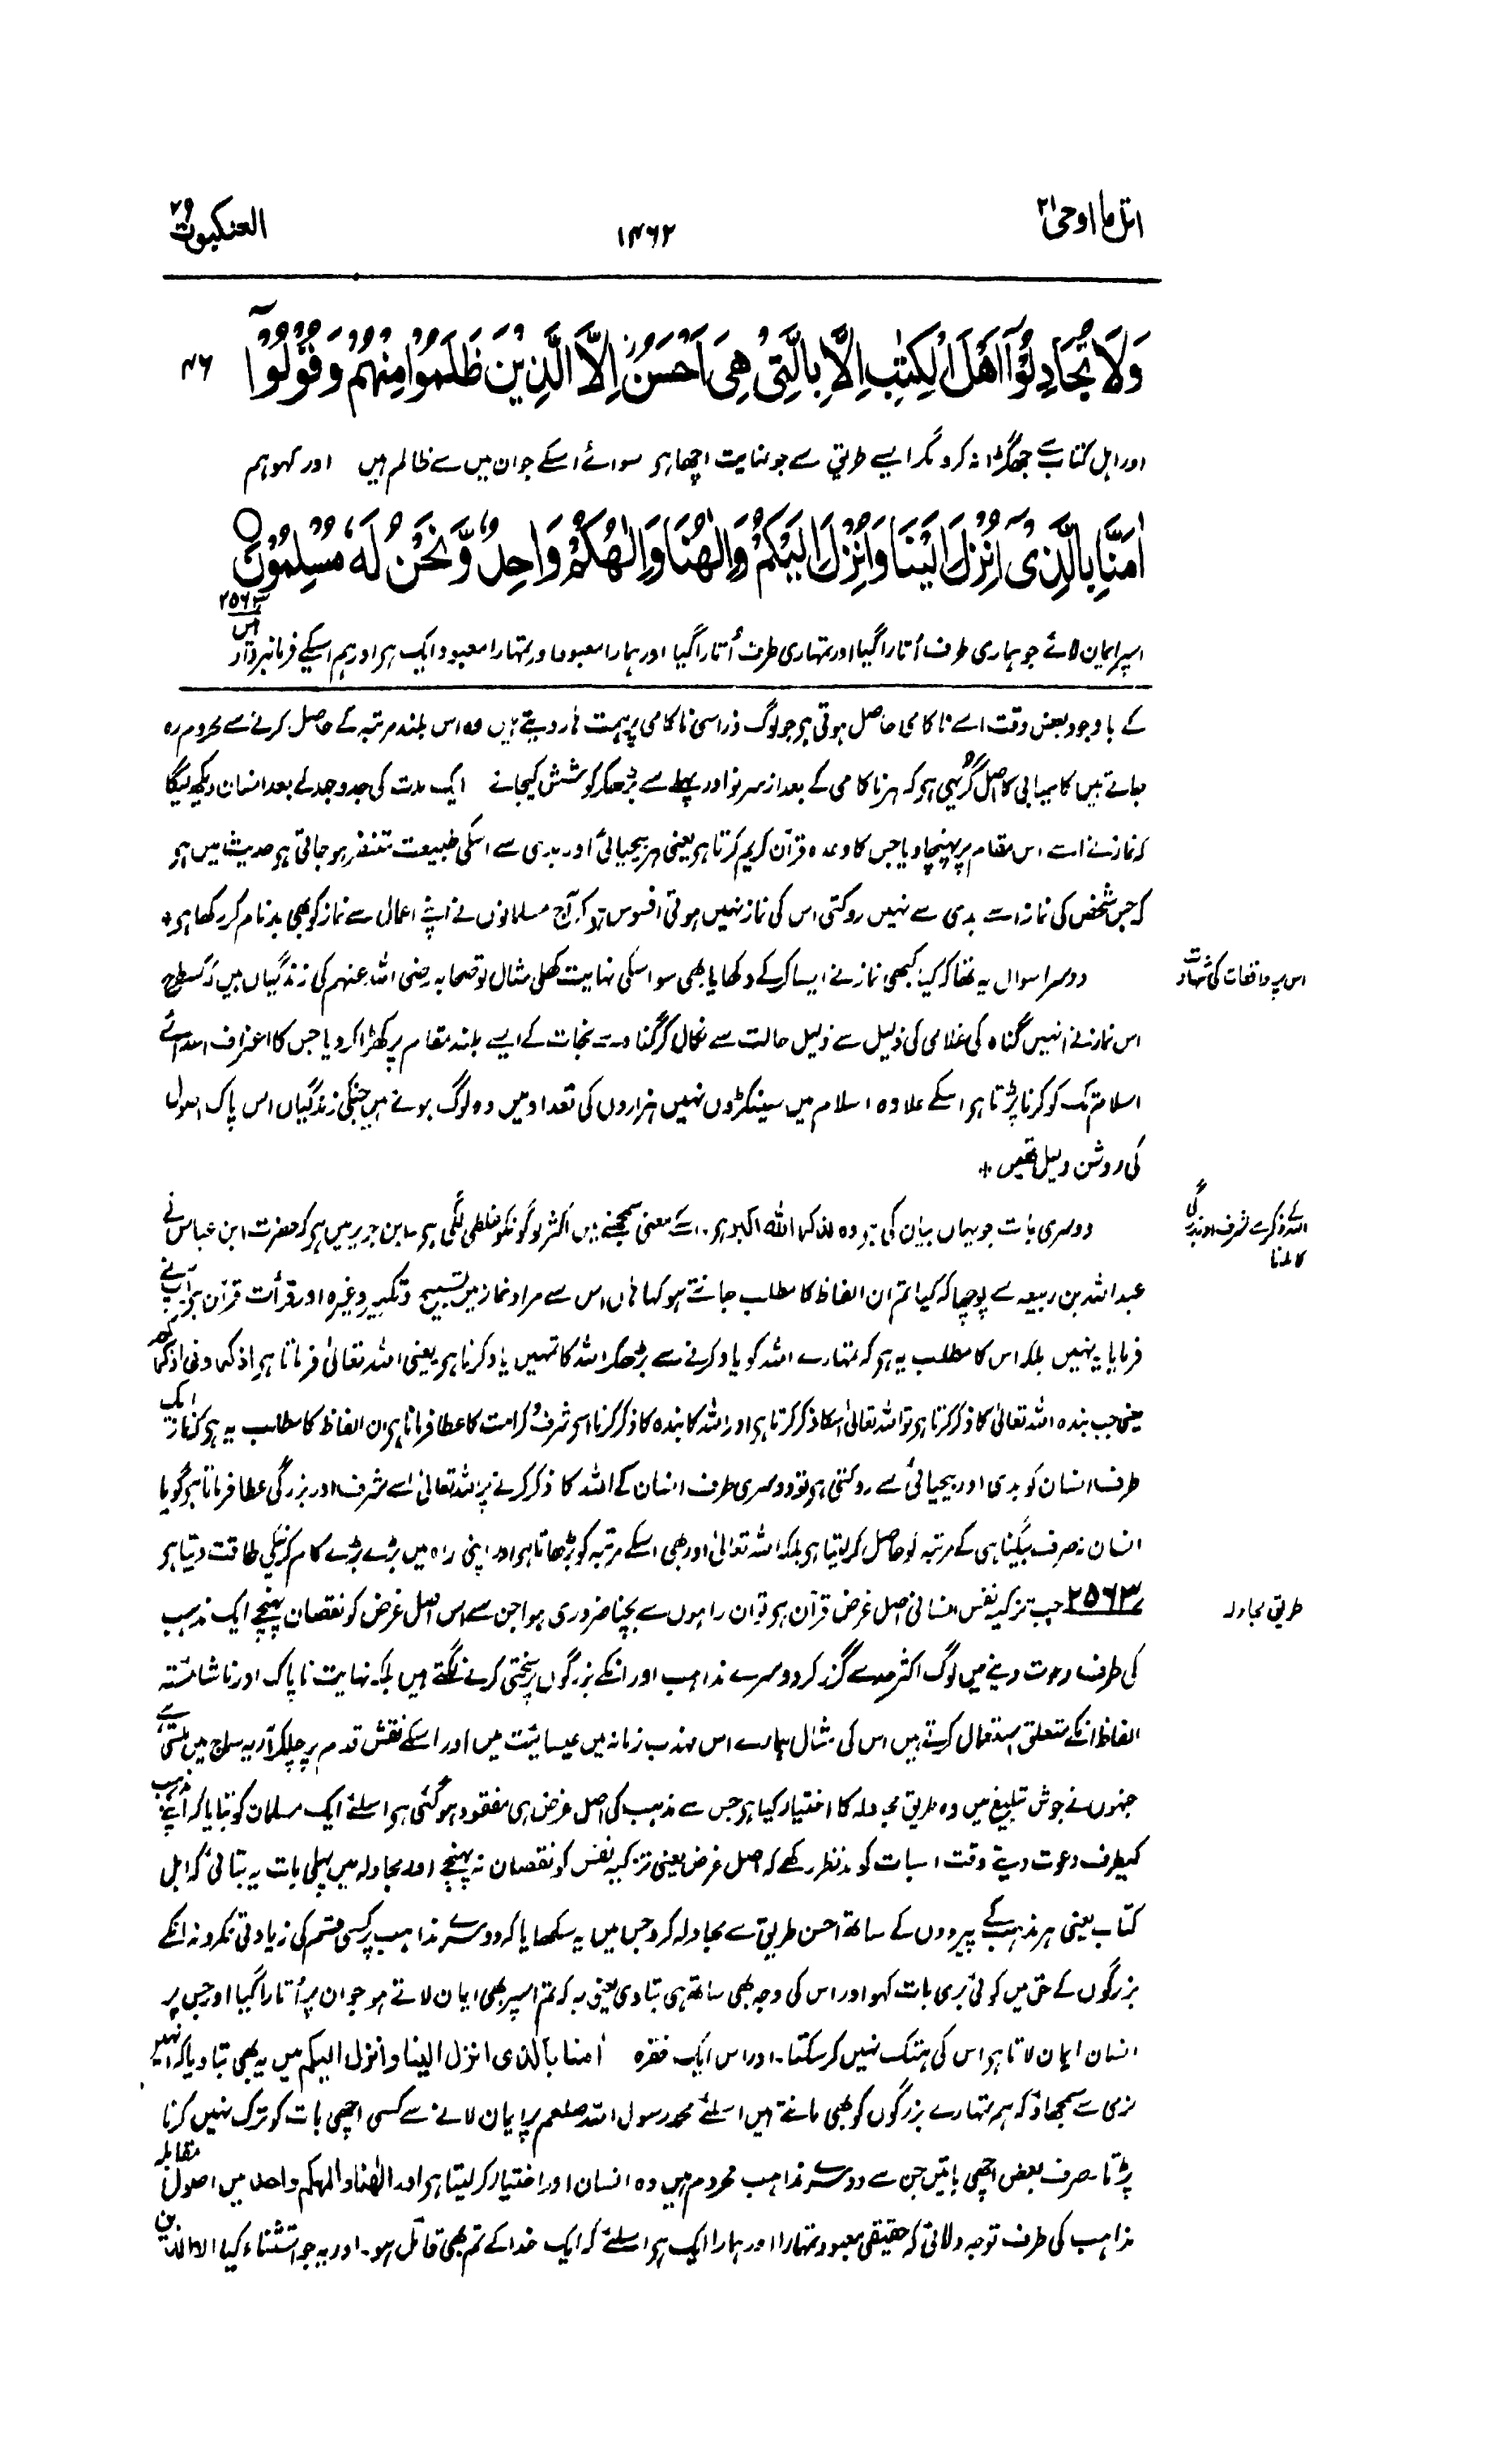 اتل ما اوحی ۲۱
۱۴۶۲
العنکبوت ۲۹
وَلَا تُجَادِلُوْٓا اَهْلَ الْكِتٰبِ اِلَّا بِالَّتِيْ هِيَ اَحْسَنُ اِلَّا الَّذِيْنَ ظَلَمُوْا مِنْهُمْ وَقُوْلُوْٓا
۴۶
اور اہل کتاب سے جھگڑا نہ کرو مگر ایسے طریق سے جو نہایت اچھا ہو سوائے اسکے جو ان میں سے ظالم ہیں اور کہو ہم
اٰمَنَّا بِالَّذِيْٓ اُنْزِلَ اِلَيْنَا وَاُنْزِلَ اِلَيْكُمْ وَاِلٰهُنَا وَاِلٰهُكُمْ وَاحِدٌ وَّنَحْنُ لَهٗ مُسْلِمُوْنَ ○
۲۵۶۳
اسپر ایمان لائے جو ہماری طرف اُتارا گیا اور تمہاری طرف اُتارا گیا اور ہمارا معبود اور تمہارا معبود ایک ہے اور ہم اسکے فرمانبردار ہیں
کے باوجود بعض وقت اسے ناکامی حاصل ہوتی ہے جو لوگ ذراسی ناکامی پر ہمت ہار دیتے ہیں وہ اس بلند مرتبہ کے حاصل کرنے سے محروم رہ
جاتے ہیں کامیابی کا اصل گُر یہی ہے کہ ہر ناکامی کے بعد از سرنو اور پہلے سے بڑھکر کوشش کیجائے ایک مدت کی جدوجہد کے بعد انسان دیکھ لیگا
کہ نماز نے اسے اس مقام پر پہنچا دیا جس کا وعدہ قرآن کریم کرتا ہے یعنی ہر بیحیائی اور بدی سے اسکی طبیعت متنفر ہو جاتی ہے حدیث میں ہے
کہ جس شخص کی نماز اسے بدی سے نہیں روکتی اس کی نماز نہیں ہوتی افسوس تو کہ آج مسلمانوں نے اپنے اعمال سے نماز کو بھی بدنام کر رکھا ہے +
اس پر واقعات کی شہادت
دوسرا سوال یہ تھا کہ کیا کبھی نماز نے ایسا کرکے دکھایا بھی سو اسکی نہایت کھلی مثال تو صحابہ رضی اللہ عنہم کی زندگیاں ہیں کہ کسطرح
اس نماز نے انہیں گناہ کی غلامی کی ذلیل سے ذلیل حالت سے نکال کر گناہ سے نجات کے ایسے بلند مقام پر کھڑا کر دیا جس کا اعتراف اعدائے
اسلام تک کو کرنا پڑتا ہے اسکے علاوہ اسلام میں سینکڑوں نہیں ہزاروں کی تعداد میں وہ لوگ ہوئے ہیں جنکی زندگیاں اس پاک اصول
کی روشن دلیل تھیں +
اللہ کے ذکر سے شرف اور بزرگی کا ملنا
دوسری بات جو یہاں بیان کی ہے وہ لذکر اللہ اکبر ہے۔ اسکے معنی سمجھنے میں اکثر لوگونکو غلطی لگی ہے۔ ابن جریر میں ہے کہ حضرت ابن عباس نے
عبداللہ بن ربیعہ سے پوچھا کہ کیا تم ان الفاظ کا مطلب جانتے ہو کہا ہاں اس سے مراد نماز میں تسبیح و تکبیر وغیرہ اور قرأت قرآن ہے آپ نے
فرمایا یہ نہیں بلکہ اس کا مطلب یہ ہے کہ تمہارے اللہ کو یاد کرنے سے بڑھکر اللہ کا تمہیں یاد کرنا ہے یعنی اللہ تعالیٰ فرماتا ہے اذکرونی اذکرکم
یعنی جب بندہ اللہ تعالیٰ کا ذکر کرتا ہے تو اللہ تعالیٰ اسکا ذکر کرتا ہے اور اللہ کا بندہ کا ذکر کرنا اسے شرف و کرامت کا عطا فرمانا ہے ان الفاظ کا مطلب یہ ہے کہ نماز ایک
طرف انسان کو بدی اور بیحیائی سے روکتی ہے تو دوسری طرف انسان کے اللہ کا ذکر کرنے پر اللہ تعالیٰ اسے شرف اور بزرگی عطا فرماتا ہے گویا
انسان نہ صرف بیگناہی کے مرتبہ کو حاصل کر لیتا ہے بلکہ اللہ تعالیٰ اور بھی اسکے مرتبہ کو بڑھاتا ہے اور اپنی راہ میں بڑے بڑے کام کرنیکی طاقت دیتا ہے
طریق مجادلہ
۲۵۶۳ جب تزکیہ نفس انسانی اصل غرض قرآن ہے تو ان راہوں سے بچنا ضروری ہوا جن سے اس اصل غرض کو نقصان پہنچے ایک مذہب
کی طرف دعوت دینے میں لوگ اکثر حد سے گزر کر دوسرے مذاہب اور انکے بزرگوں پر سختی کرنے لگتے ہیں بلکہ نہایت ناپاک اور ناشائستہ
الفاظ انکے متعلق استعمال کرتے ہیں اس کی مثال ہمارے اس مہذب زمانہ میں عیسائیت میں اور اسکے نقش قدم پر چلکر آریہ سماج میں ملتی ہے
جنہوں نے جوش تبلیغ میں وہ طریق مجادلہ کا اختیار کیا ہے جس سے مذہب کی اصل غرض ہی مفقود ہو گئی ہے اسلئے ایک مسلمان کو بتایا کہ اپنے مذہب
کیطرف دعوت دیتے وقت اسبات کو مدنظر رکھے کہ اصل غرض یعنی تزکیہ نفس کو نقصان نہ پہنچے اور مجادلہ میں پہلی بات یہ بتائی کہ اہل
کتاب یعنی ہر مذہب کے پیرووں کے ساتھ احسن طریق سے مجادلہ کرو جس میں یہ سکھایا کہ دوسرے مذاہب پر کسی قسم کی زیادتی نکرو نہ انکے
بزرگوں کے حق میں کوئی بری بات کہو اور اس کی وجہ بھی ساتھ ہی بتا دی یعنی یہ کہ تم اسپر بھی ایمان لاتے ہو جو ان پر اُتارا گیا اور جس پر
انسان ایمان لاتا ہے اس کی ہتک نہیں کر سکتا۔ اور اس ایک فقرہ اٰمنا بالذی انزل الینا وانزل الیکم میں یہ بھی بتا دیا کہ انہیں
نرمی سے سمجھاؤ کہ ہم تمہارے بزرگوں کو بھی مانتے ہیں اسلئے محمد رسول اللہ صلعم پر ایمان لانے سے کسی اچھی بات کو ترک نہیں کرنا
پڑتا صرف بعض اچھی باتیں جن سے دوسرے مذاہب محروم ہیں وہ انسان اور اختیار کر لیتا ہے اور الٰھنا والٰھکم واحد میں اصول مقابلہ
مذاہب کی طرف توجہ دلائی کہ حقیقی معبود تمہارا اور ہمارا ایک ہے اسلئے کہ ایک خدا کے تم بھی قائل ہو۔ اور یہ جو استثناء کیا الا الذین